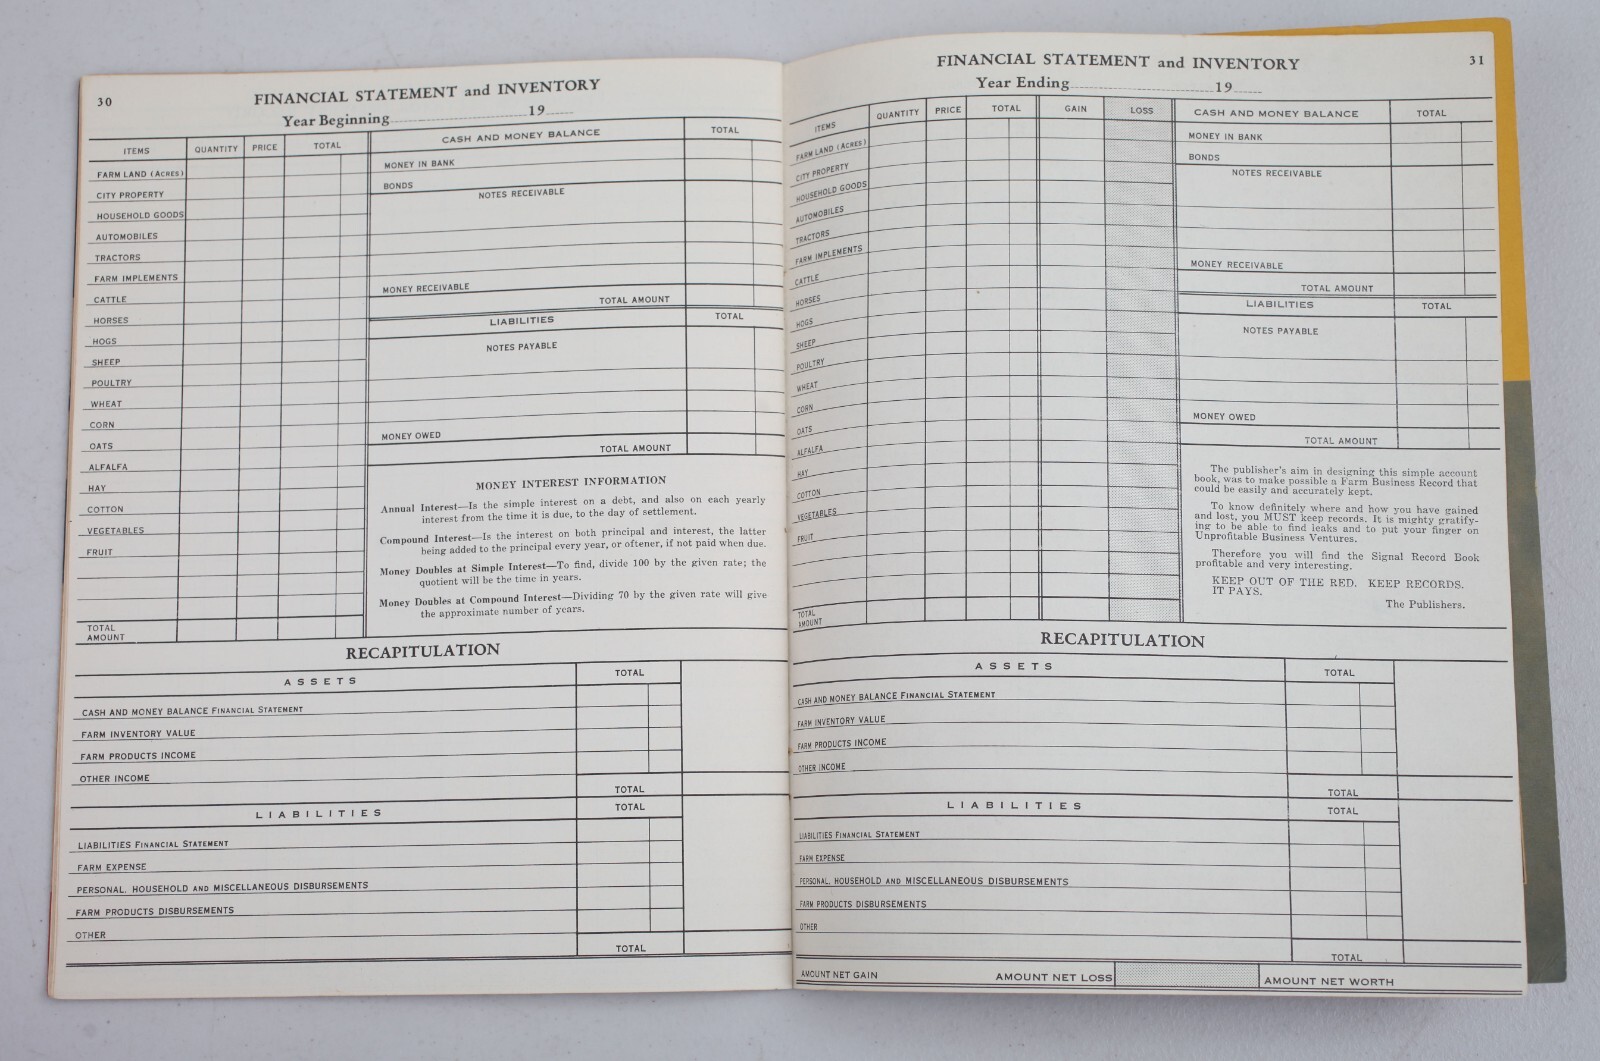 30
FINANCIAL STATEMENT and INVENTORY
Year Beginning 19
ITEMS QUANTITY PRICE TOTAL
FARM LAND (ACRES)
CITY PROPERTY
HOUSEHOLD GOODS
AUTOMOBILES
TRACTORS
FARM IMPLEMENTS
CATTLE
HORSES
HOGS
SHEEP
POULTRY
WHEAT
CORN
OATS
ALFALFA
HAY
COTTON
VEGETABLES
FRUIT
TOTAL
AMOUNT
CASH AND MONEY BALANCE TOTAL
MONEY IN BANK
BONDS
NOTES RECEIVABLE
MONEY RECEIVABLE
TOTAL AMOUNT
LIABILITIES TOTAL
NOTES PAYABLE
MONEY OWED
TOTAL AMOUNT
MONEY INTEREST INFORMATION
Annual Interest—Is the simple interest on a debt, and also on each yearly
interest from the time it is due, to the day of settlement.
Compound Interest—Is the interest on both principal and interest, the latter
being added to the principal every year, or oftener, if not paid when due.
Money Doubles at Simple Interest—To find, divide 100 by the given rate; the
quotient will be the time in years.
Money Doubles at Compound Interest—Dividing 70 by the given rate will give
the approximate number of years.
RECAPITULATION
ASSETS TOTAL
CASH AND MONEY BALANCE FINANCIAL STATEMENT
FARM INVENTORY VALUE
FARM PRODUCTS INCOME
OTHER INCOME
TOTAL
LIABILITIES TOTAL
LIABILITIES FINANCIAL STATEMENT
FARM EXPENSE
PERSONAL, HOUSEHOLD AND MISCELLANEOUS DISBURSEMENTS
FARM PRODUCTS DISBURSEMENTS
OTHER
TOTAL
31
FINANCIAL STATEMENT and INVENTORY
Year Ending 19
ITEMS QUANTITY PRICE TOTAL GAIN LOSS
FARM LAND (ACRES)
CITY PROPERTY
HOUSEHOLD GOODS
AUTOMOBILES
TRACTORS
FARM IMPLEMENTS
CATTLE
HORSES
HOGS
SHEEP
POULTRY
WHEAT
CORN
OATS
ALFALFA
HAY
COTTON
VEGETABLES
FRUIT
TOTAL
AMOUNT
CASH AND MONEY BALANCE TOTAL
MONEY IN BANK
BONDS
NOTES RECEIVABLE
MONEY RECEIVABLE
TOTAL AMOUNT
LIABILITIES TOTAL
NOTES PAYABLE
MONEY OWED
TOTAL AMOUNT
The publisher's aim in designing this simple account
book, was to make possible a Farm Business Record that
could be easily and accurately kept.
To know definitely where and how you have gained
and lost, you MUST keep records. It is mighty gratify-
ing to be able to find leaks and to put your finger on
Unprofitable Business Ventures.
Therefore you will find the Signal Record Book
profitable and very interesting.
KEEP OUT OF THE RED. KEEP RECORDS.
IT PAYS.
The Publishers.
RECAPITULATION
ASSETS TOTAL
CASH AND MONEY BALANCE FINANCIAL STATEMENT
FARM INVENTORY VALUE
FARM PRODUCTS INCOME
OTHER INCOME
TOTAL
LIABILITIES TOTAL
LIABILITIES FINANCIAL STATEMENT
FARM EXPENSE
PERSONAL, HOUSEHOLD AND MISCELLANEOUS DISBURSEMENTS
FARM PRODUCTS DISBURSEMENTS
OTHER
TOTAL
AMOUNT NET GAIN AMOUNT NET LOSS AMOUNT NET WORTH